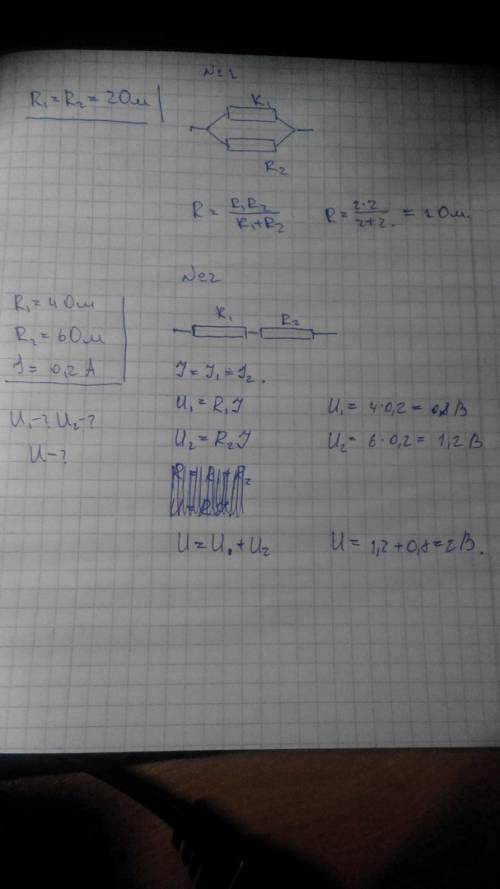 №1
R₁=R₂=2Ом
R₁
R₂
R = R₁R₂/R₁+R₂   R = 2·2/2+2. = 1Ом.
№2
R₁=4Ом
R₂=6Ом
I=0,2А
U₁-? U₂-?
U-?
R₁ R₂
I = I₁ = I₂.
U₁ = R₁I   U₁ = 4·0,2 = 0,8В
U₂ = R₂I   U₂ = 6·0,2 = 1,2В
U = U₁ + U₂   U = 1,2+0,8=2В.